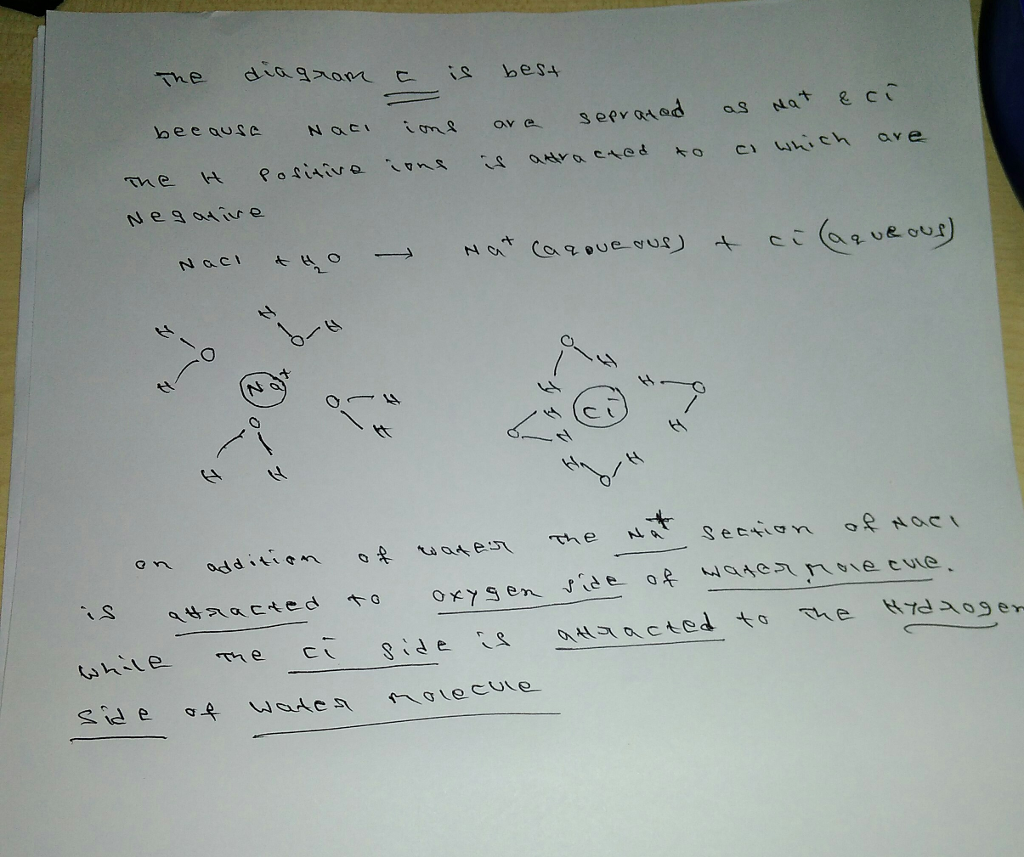 The diagram C is best
because NaCl ions are seprated as Na⁺ & Cl⁻
The H positive ions is attracted to Cl which are
Negative
NaCl + H₂O → Na⁺ (aqoueous) + Cl⁻ (aqueous)
H H H
O O
H
Na⁺
O H
H
O
H H
O
H
H
H O
H
Cl⁻
H
O H
H H
O
on addition of water the Na⁺ section of NaCl
is attracted to oxygen side of water molecule.
while the Cl⁻ side is attracted to the Hydrogen
side of water molecule